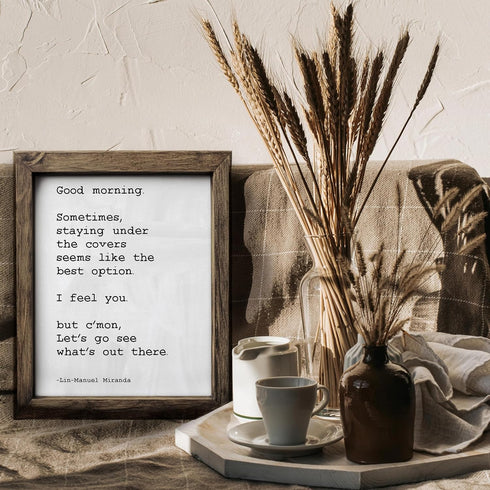 Good morning.
Sometimes,
staying under
the covers
seems like the
best option.
I feel you.
but c'mon,
Let's go see
what's out there.
-Lin-Manuel Miranda